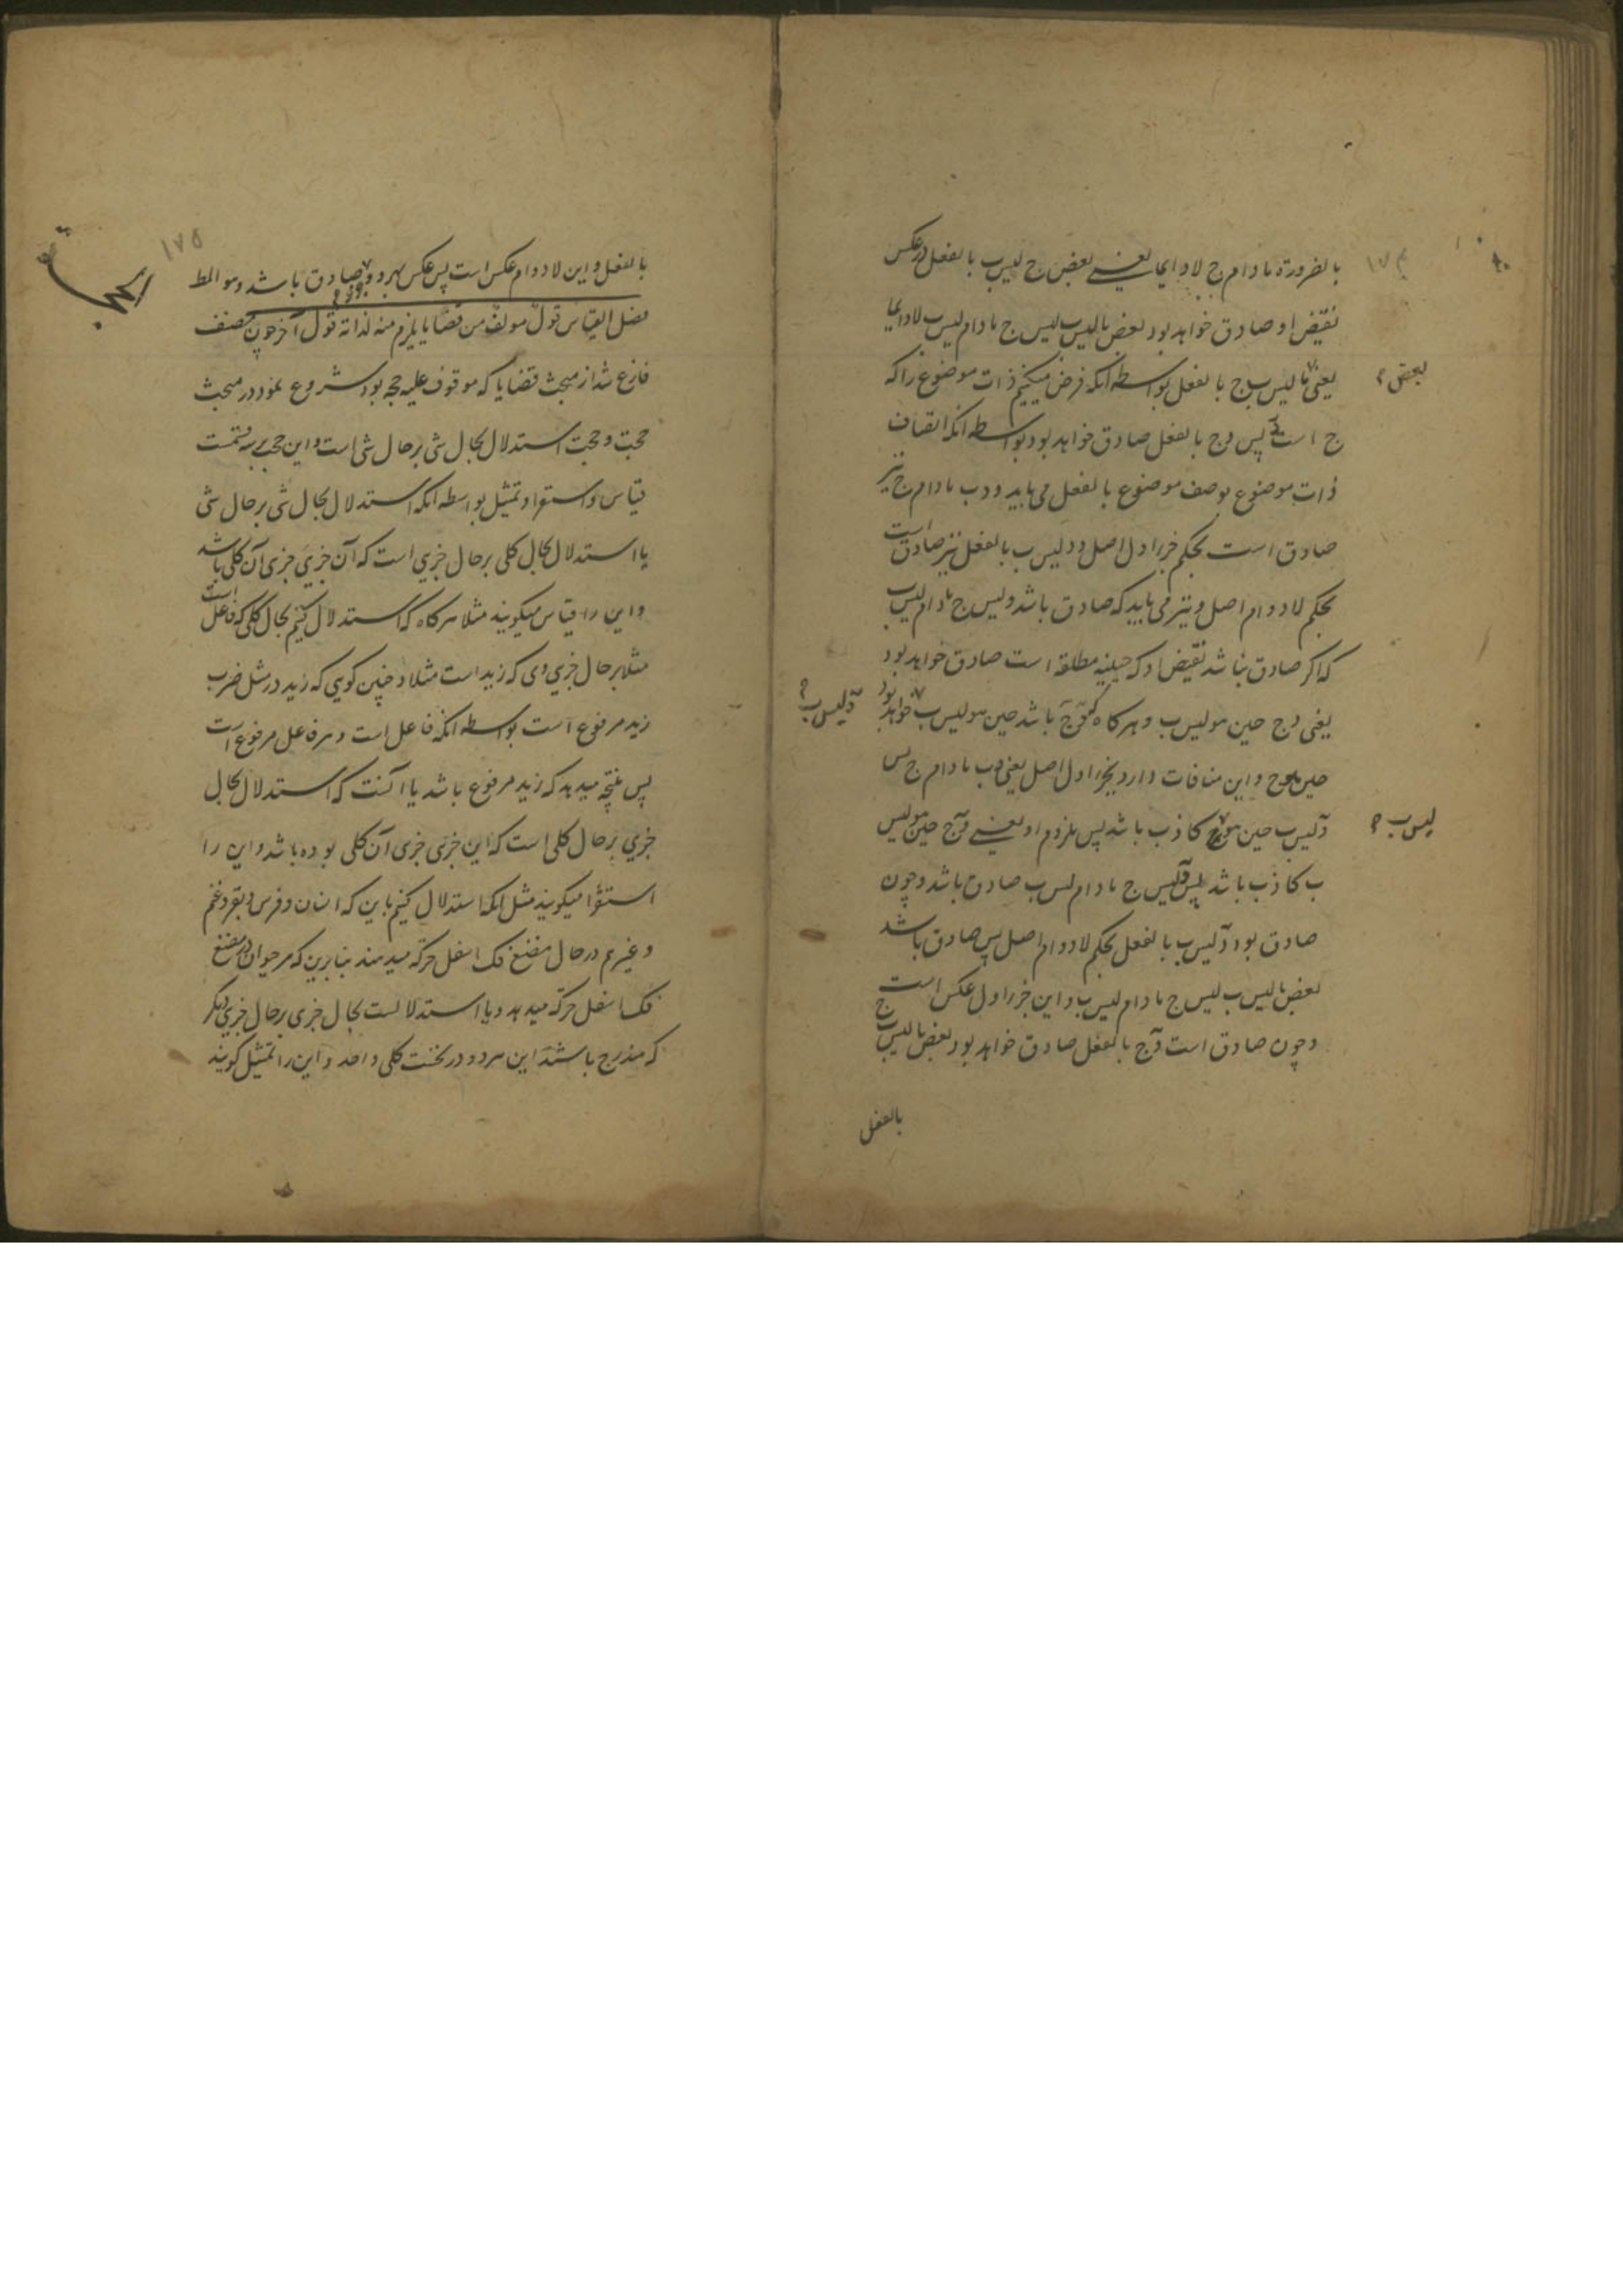 ۱۷۴
بالضرورة مادام ج لادایما یعنے بعض ج لیس ب بالفعل در عکس
نقیض او صادق خواهد بود بعض مالیس ب لیس ج مادام لیس ب لادایما
یعنی مالیس ب ج بالفعل بواسطه آنکه فرض میکنیم ذات موضوع را که
بعض
ج است پس د ج بالفعل صادق خواهد بود بواسطه آنکه اتصاف
ذات موضوع بوصف موضوع بالفعل می باید و د ب مادام ج نیز
صادق است بحکم جزء اول اصل و د لیس ب بالفعل نیز صادق است
بحکم لادوام اصل و نیز می باید که صادق باشد د لیس ج مادام لیس ب
که اکر صادق نباشد نقیض او که حینیه مطلقه است صادق خواهد بود
یعنی د ج حین هو لیس ب و هرکاه که د ج باشد حین هو لیس ب خواهد بود
د لیس ب
حین هو ج و این منافات دارد بجزء اول اصل یعنی د ب مادام ج پس
د لیس ب حین هو ج کاذب باشد پس ملزوم او یعنے د ج حین هو لیس
لیس ب
ب کاذب باشد پس د لیس ج مادام لیس ب صادق باشد و چون
صادق بود د لیس ب بالفعل بحکم لادوام اصل پس صادق باشد
بعض مالیس ب لیس ج مادام لیس ب و این جزء اول عکس است
و چون صادق است د ج بالفعل صادق خواهد بود بعض مالیس ب ج
بالفعل
۱۷۵
بالفعل و این لادوام عکس است پس عکس بهر دو جزو صادق باشد و هو المط
فصل القیاس قول مولف من قضایا یلزم منه لذاته قول آخر چون مصنف
فارغ شد از مبحث قضایا که موقوف علیه حجه بود شروع نمود در مبحث
حجت و حجت استدلال بحال شی بر حال شی است و این حجت بر سه قسمت
قیاس و استقرا و تمثیل بواسطه آنکه استدلال بحال شی بر حال شی
یا استدلال بحال کلی بر حال جزیی است که آن جزیی جزی آن کلی باشد
و این را قیاس میکویند مثلا هرکاه که استدلال کنیم بحال کلی که فاعل است
مثلا بر حال جزیی وی که زید است مثلا و چنین کویی که زید در مثل ضرب
زید مرفوع است بواسطه آنکه فاعل است و هر فاعل مرفوع است
پس نتیجه میدهد که زید مرفوع باشد یا آنست که استدلال بحال
جزیی بر حال کلی است که این جزی جزی آن کلی بوده باشد و این را
استقرا میکویند مثل آنکه استدلال کنیم باین که انسان و فرس و بقر و غنم
و غیرهم در حال مضغ فک اسفل حرکة میدهند بنابرین که هر حیوان در مضغ
فک اسفل حرکة میدهد و یا استدلالست بحال جزی بر حال جزیی دیکر
که مندرج باشند این هر دو در تحت کلی واحد و این را تمثیل کویند